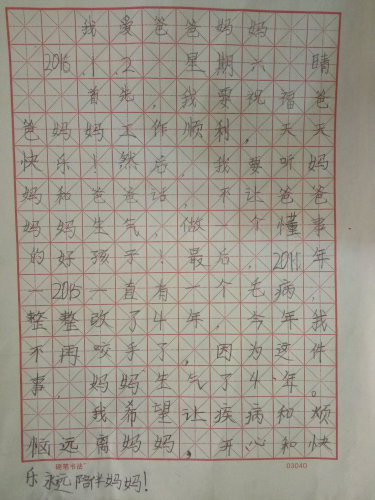 我爱爸爸妈妈
2016.1.2 星期六 晴
首先，我要祝福爸
爸妈妈工作顺利，天天
快乐！然后，我要听妈
妈和爸爸话，不让爸爸
妈妈生气，做一个懂事
的好孩子！最后，2011年
—2015一直有一个毛病，
整整改了4年，今年我
不再咬手了，因为这件
事，妈妈生气了4年。
我希望让疾病和烦
恼远离妈妈，开心和快
硬笔书法 03040
乐永远陪伴妈妈！